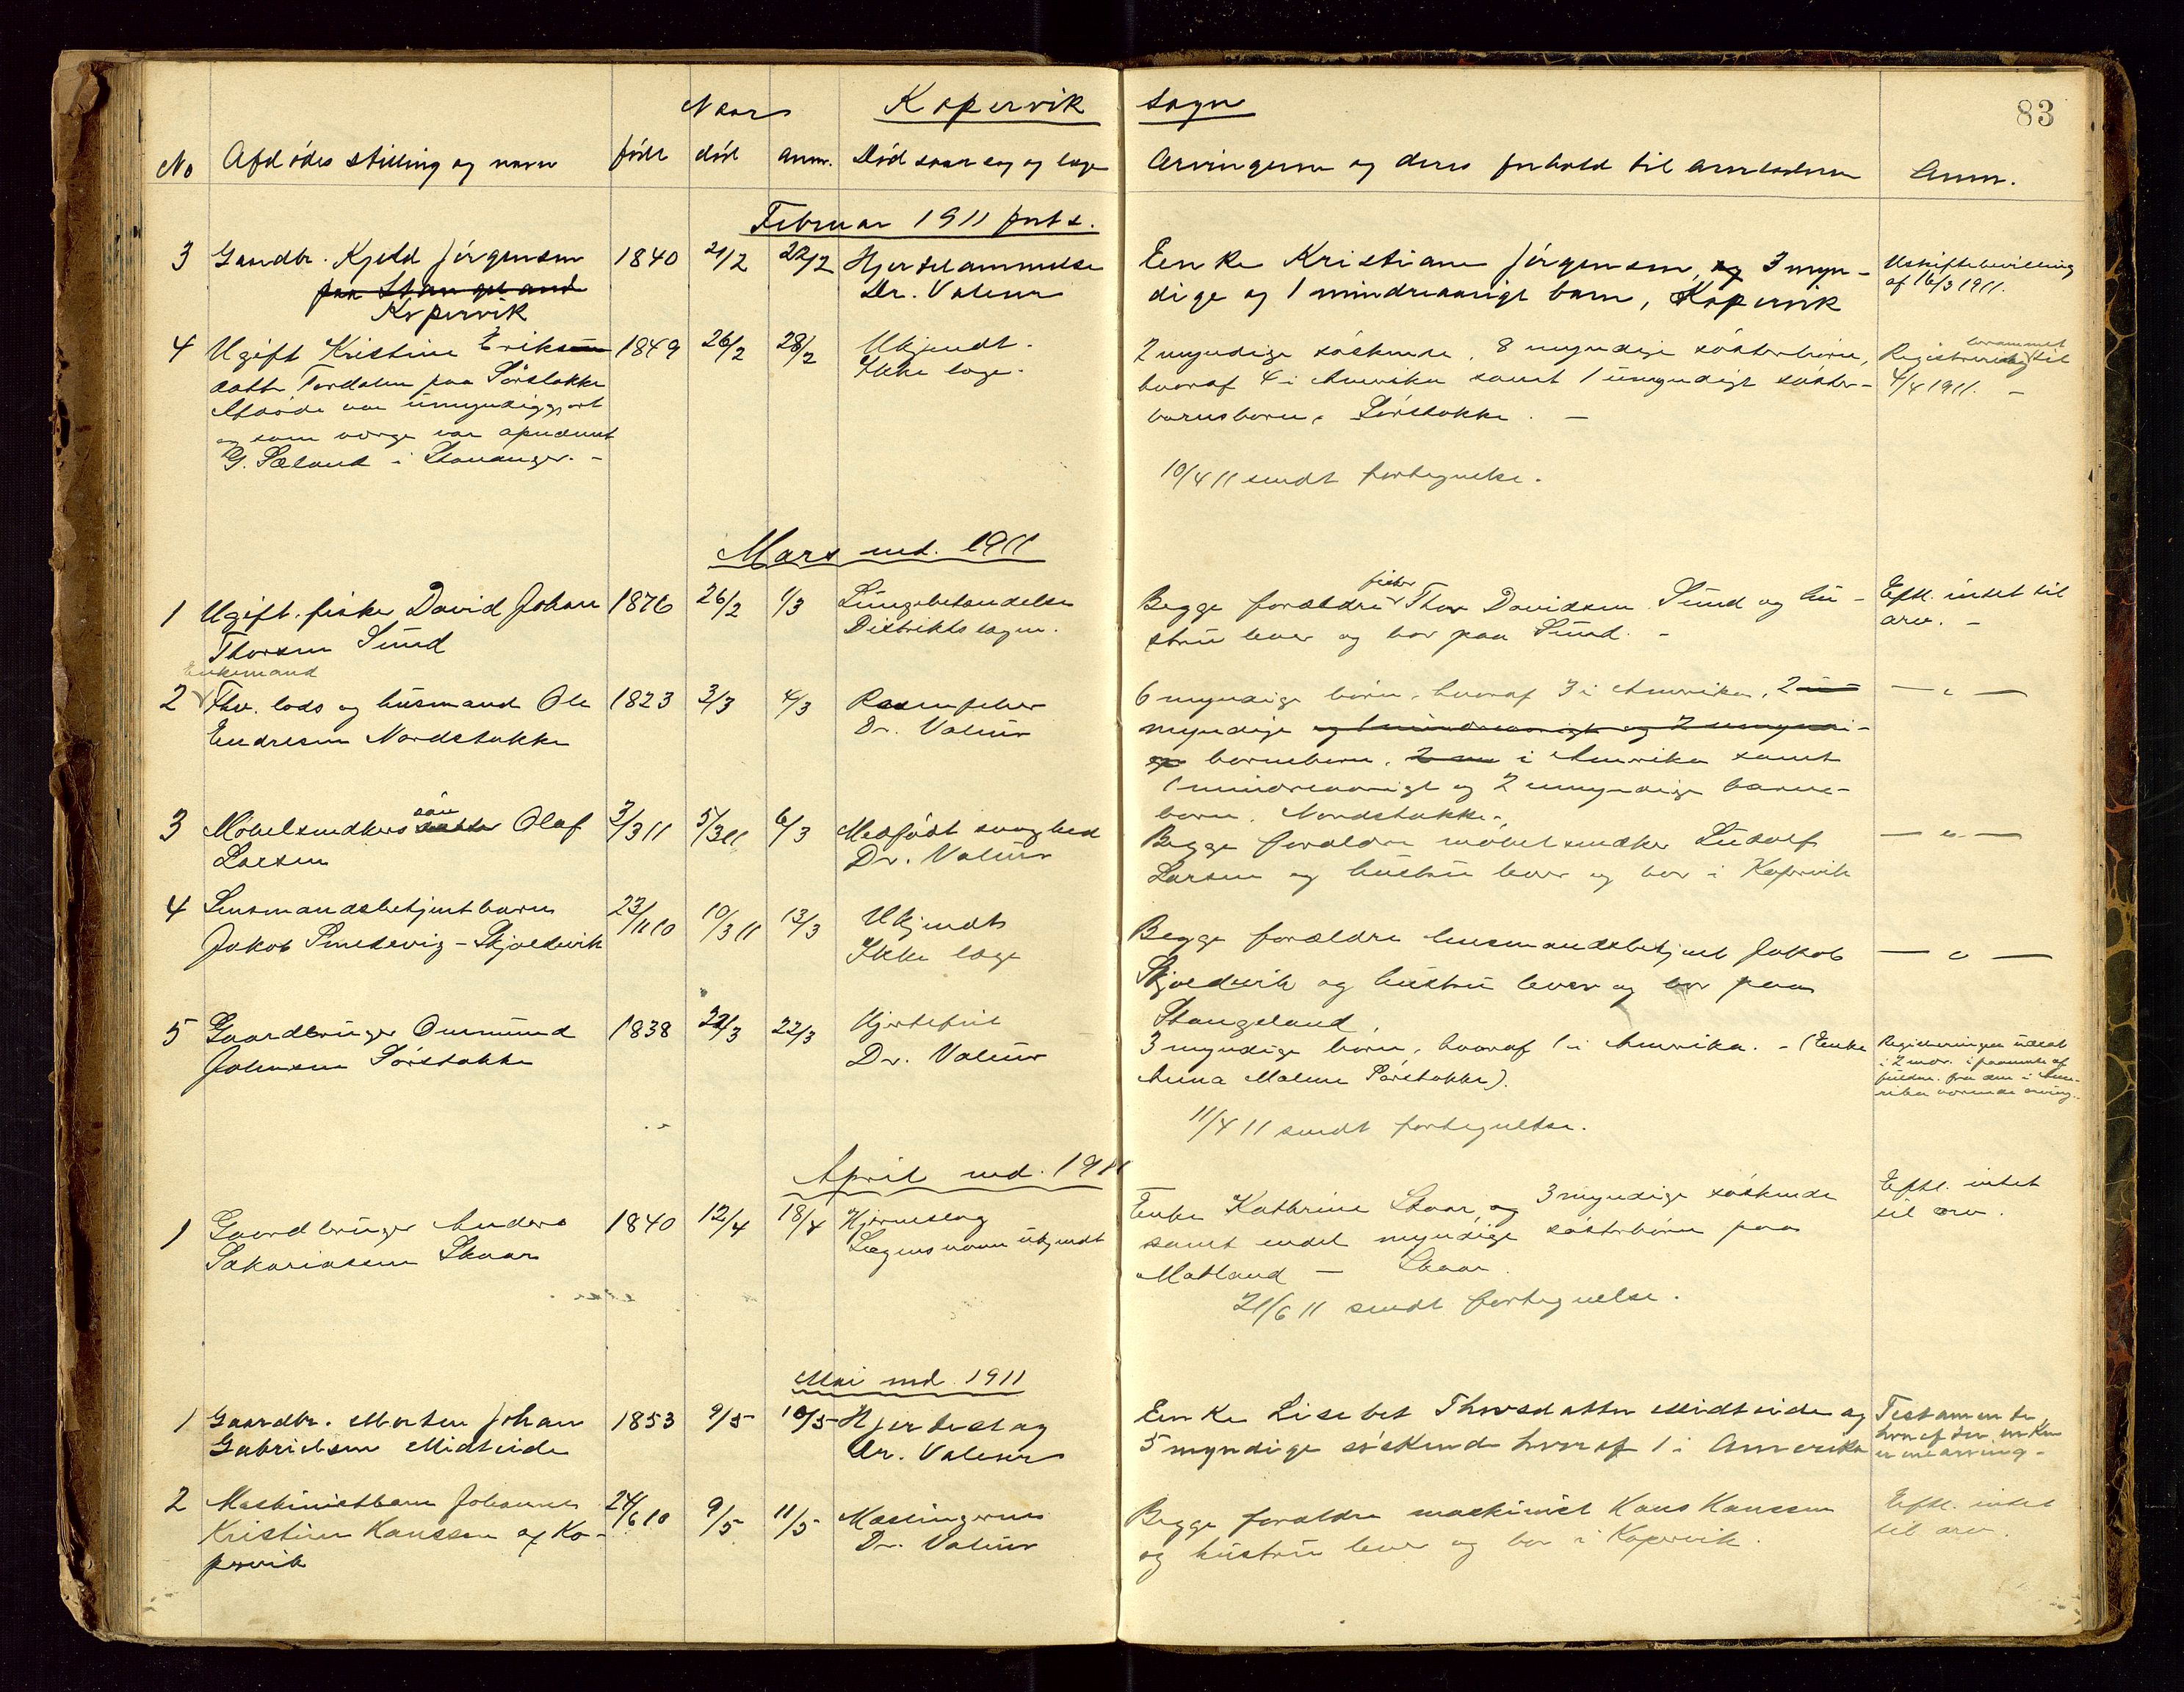 83
Kopervik sogn
Naar
No Afdödes stilling og navn född död anm. Död saarsag og læge Arvingerne og deres forhold til arveladeren Anm.
Februar 1911 forts.
3 Gaardbr. Kjeld Jörgensen 1840 21/2 22/2 Hjertelammelse Enke Kristiane Jörgensen, og 3 myn- Uskiftebevilling
paa Stangeland Dr. Valeur dige og 1 mindreaarigt barn, Kopervik af 16/3 1911.
Kopervik
4 Ugift Kristine Eriks 1849 26/2 28/2 Ukjendt. 2 myndige söskende, 8 myndige sösterbörn, berammet
datter paa Sörstokke Ikke læge. hvoraf 4 i Amerika samt 1 umyndigt söster- Registrering til
Afdöde var umyndiggjort barnsbarn, Sörstokke. - 4/4 1911. -
og som værge var opnævnt
G. Sæland i Stavanger. - 10/4 11 sendt fortegnelse.
Mars md. 1911
1 Ugift fisker David Johan 1876 26/2 1/3 Lungebetændelse Begge forældre fisker Thor Davidsen Sund og hu- Eftl. intet til
Thorsen Sund Distriktslægen. stru lever og bor paa Sund. - arv. -
Enkemand
2 Fhv. lods og husmand Ole 1823 3/3 4/3 Rosenfeber 6 myndige börn, hvoraf 3 i Amerika, 2 - " -
Endresen Nordstokke Dr. Valeur myndige og 1 mindreaarigt og 2 umyndi-
ge barnebarn, i Amerika samt
1 mindreaarigt og 2 umyndige barne-
barn, Nordstokke.
3 Möbelsnedkers sön datter Olaf 3/3 11 5/3 11 6/3 Medfödt svaghed Begge forældre möbelsnedker Ludolf - " -
Larsen Dr. Valeur Larsen og hustru lever og bor i Kopervik
4 Lensmandsbetjent barn 23/11 10 10/3 11 13/3 Ukjendt Begge forældre lensmandsbetjent Jakob - " -
Jakob - Skjoldevik Ikke læge Skjoldevik og hustru lever og bor paa
Stangeland.
5 Gaardbruger Ommund 1838 22/3 22/3 Hjertefeil 3 myndige börn, hvoraf 1 i Amerika. - (Enke Registreringen udsat
Johnsen Sörstokke Dr. Valeur Anna Malene Sörstokke). i 2 mdr. i paavente af
fuldm. fra den i Ame-
rika værende arving.
11/4 11 sendt fortegnelse.
April md. 1911
1 Gaardbruger Anders 1840 12/4 18/4 Hjerneslag Enke Kathrine Skaar, og 3 myndige söskende Eftl. intet
Sakariasen Skaar Lægens navn ukjendt samt endel myndige sösterbörn paa til arv.
Matland - Skaar.
21/6 11 sendt fortegnelse.
Mai md. 1911
1 Gaardbr. Morten Johan 1853 9/5 10/5 Hjerteslag Enke Lisebet Thorsdatter Midteide og Testamente
Gabrielsen Midteide Dr. Valeur 5 myndige söskende hvoraf 1 i Amerika hvoraf den enken
er enearving.
2 Maskinistbarn Johannes 24/6 10 9/5 11/5 Mæslingerne Begge forældre maskinist Hans Hanssen Eftl. intet
Kristian Hanssen af Ko- Dr. Valeur og hustru lever og bor i Kopervik. til arv.
pervik